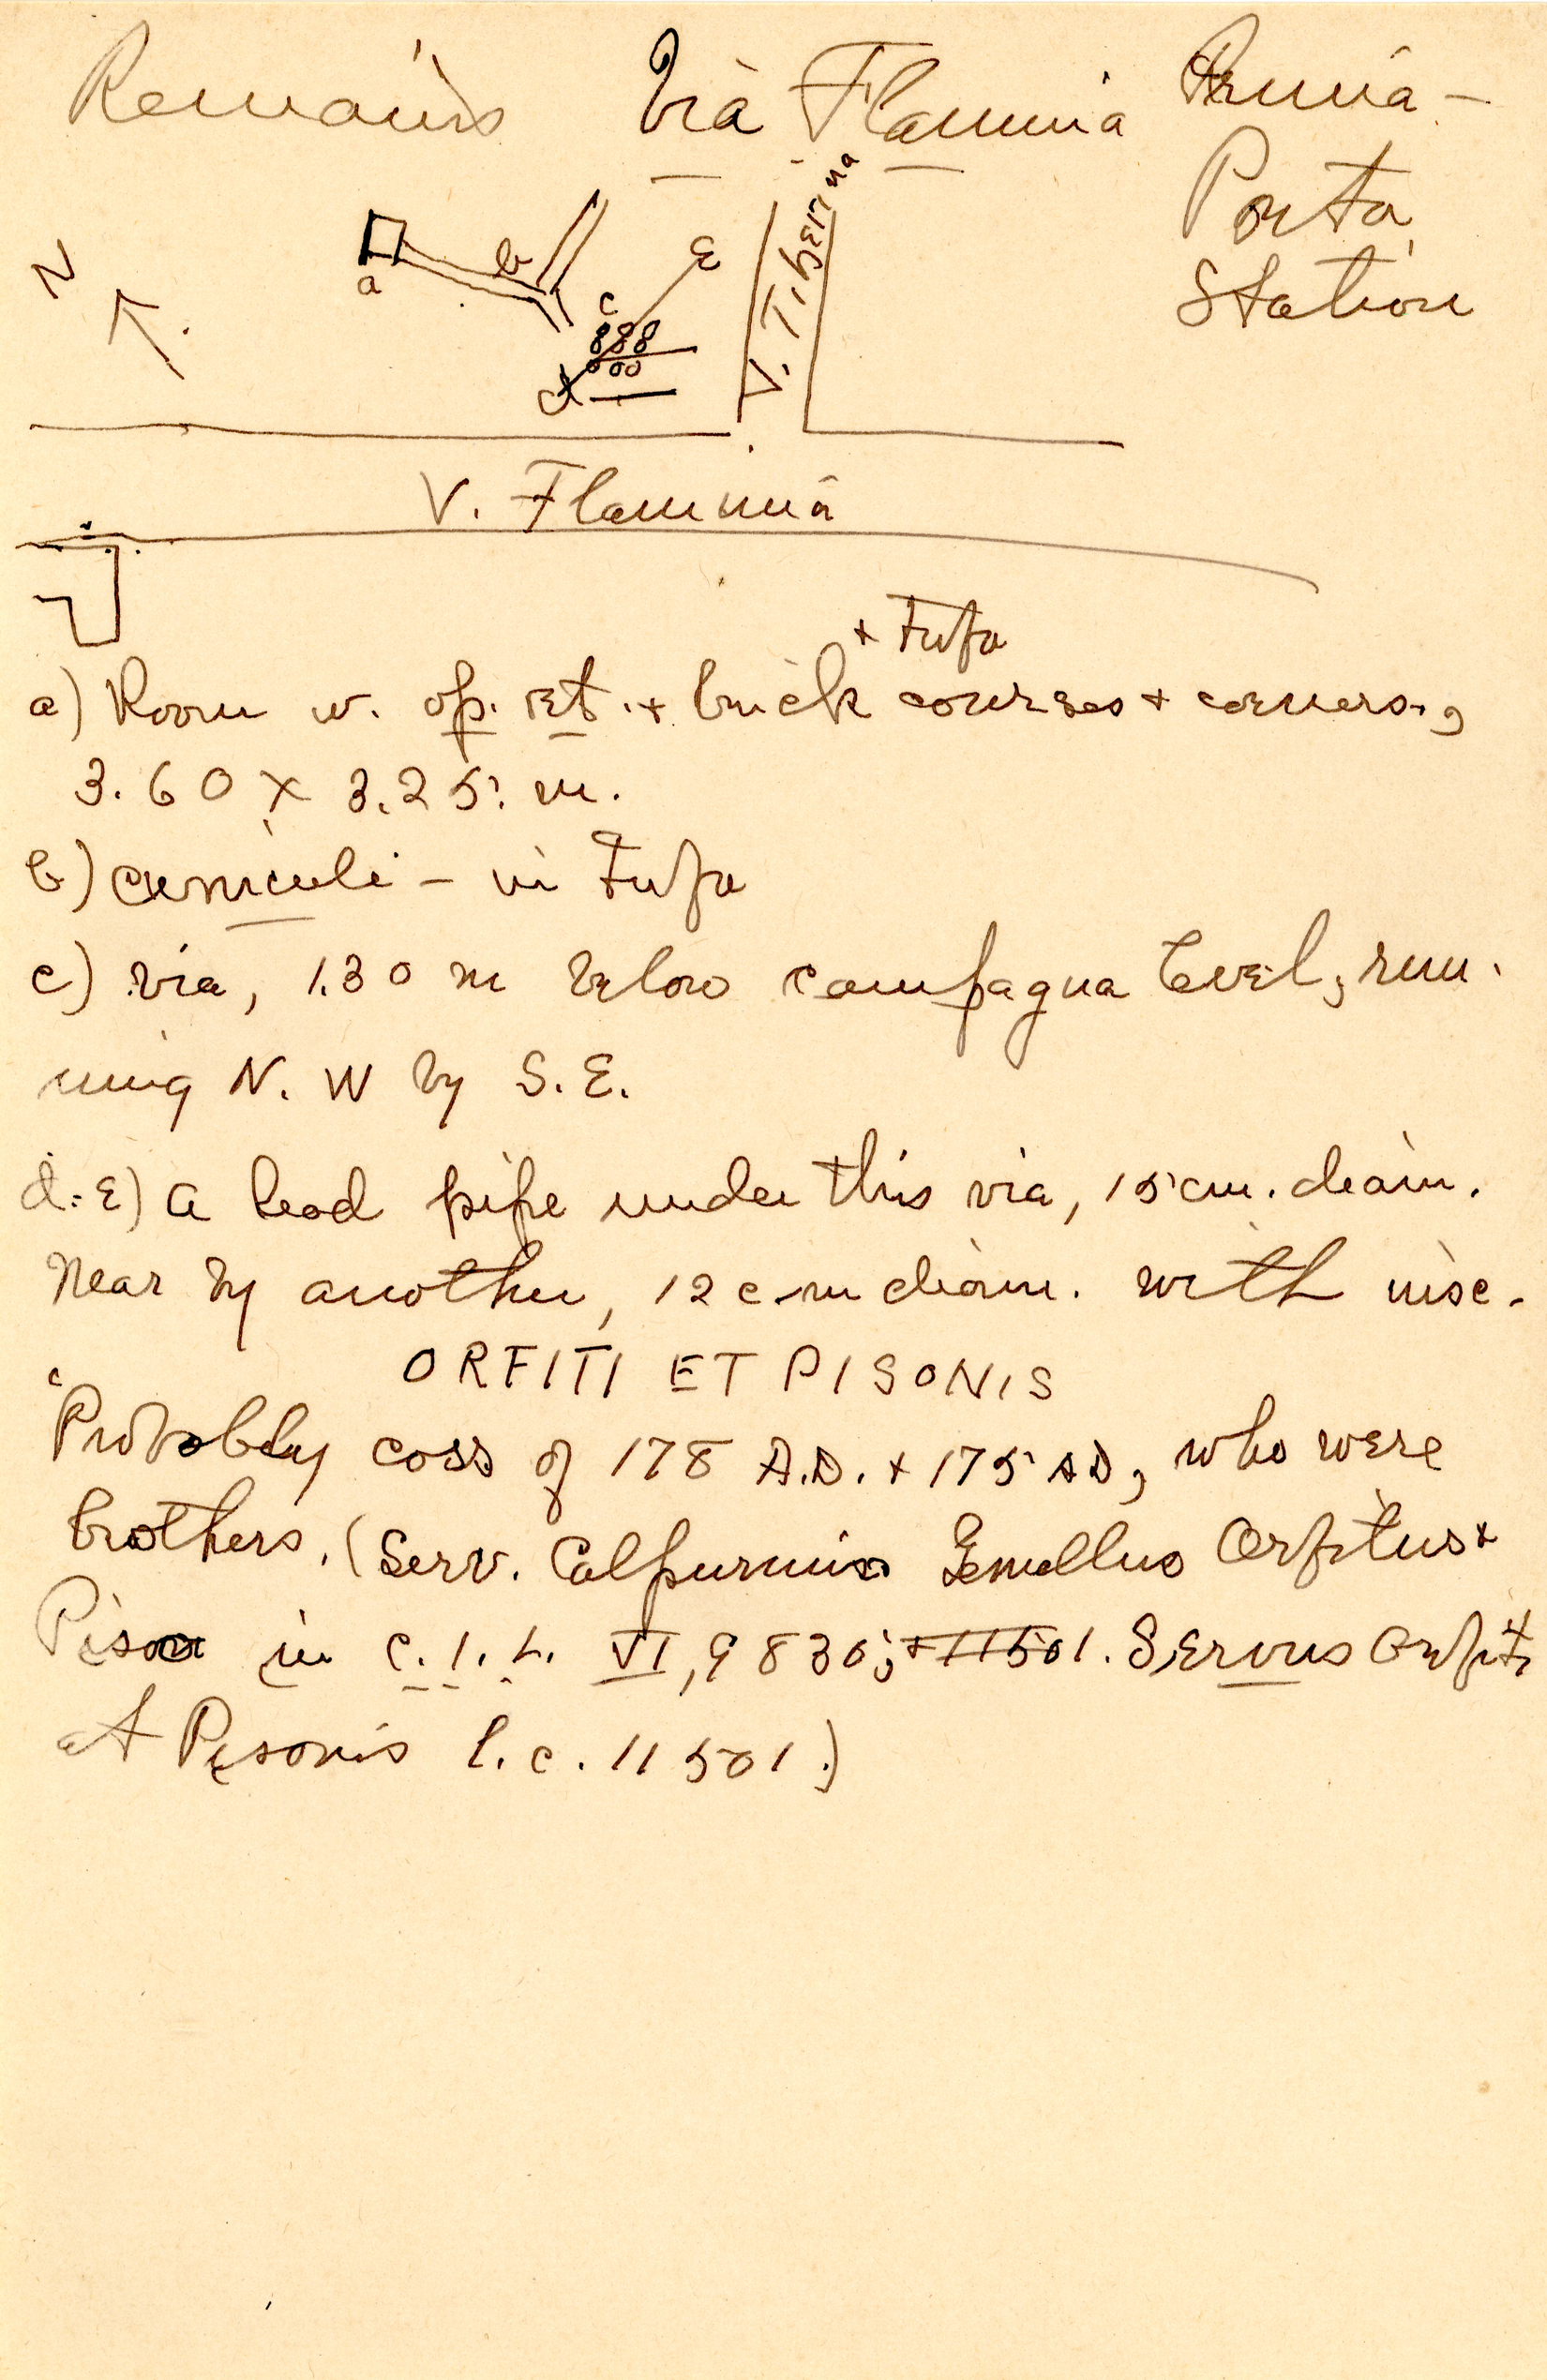 Remains Via Flaminia Prima-
Porta
Station
N
a
b
c
d
E
V. Tiberina
V. Flaminia
+ Tufa
a) Room w. op. ret. + brick courses + corners,
3.60 x 3.25 m.
b) cuniculi - in Tufa
c) via, 1.30 m below campagna level, run-
ning N. W by S. E.
d-E) a lead pipe under this via, 15 cm. diam.
Near by another, 12 cm diam. with insc.
ORFITI ET PISONIS
Probably coss of 178 A.D. + 175 AD, who were
brothers. (Serv. Calpurnius Gemellus Orfitus +
Piso in C.I.L. VI, 9830; + 11501. Servus Orfiti
et Pisonis l.c. 11501.)